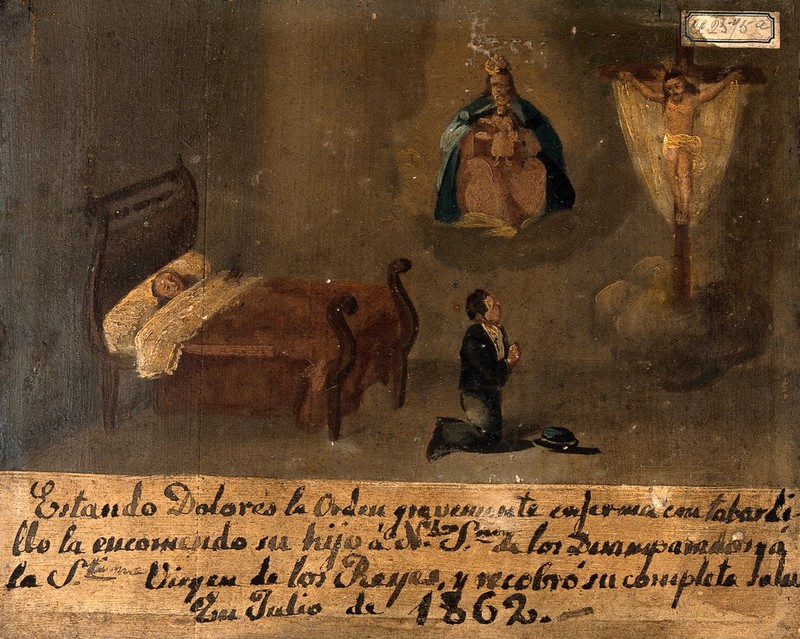 Estando Dolores la Orden gravemente enferma con tabardi
llo la encomendo su hijo á N.tro S.nor de los Desamparados y á
la S.tisima Virgen de los Reyes, y recobró su completa salu
En Julio de 1862.